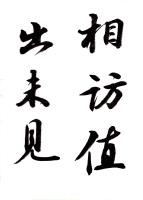 相访值
出未见